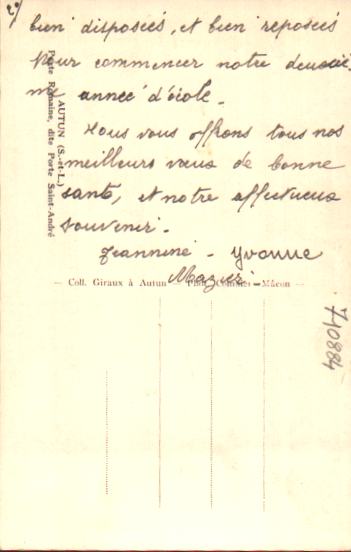 2°)
bien disposées, et bien reposées
pour commencer notre deuxiè-
me année d'école.
Nous vous offrons tous nos
meilleurs vœux de bonne
santé, et notre affectueux
souvenir.
Jeannine - Yvonne
Mazier
AUTUN (S.-et-L.)
Porte Romaine, dite Porte Saint-André
— Coll. Giraux à Autun Phot. Combier Mâcon —
710884